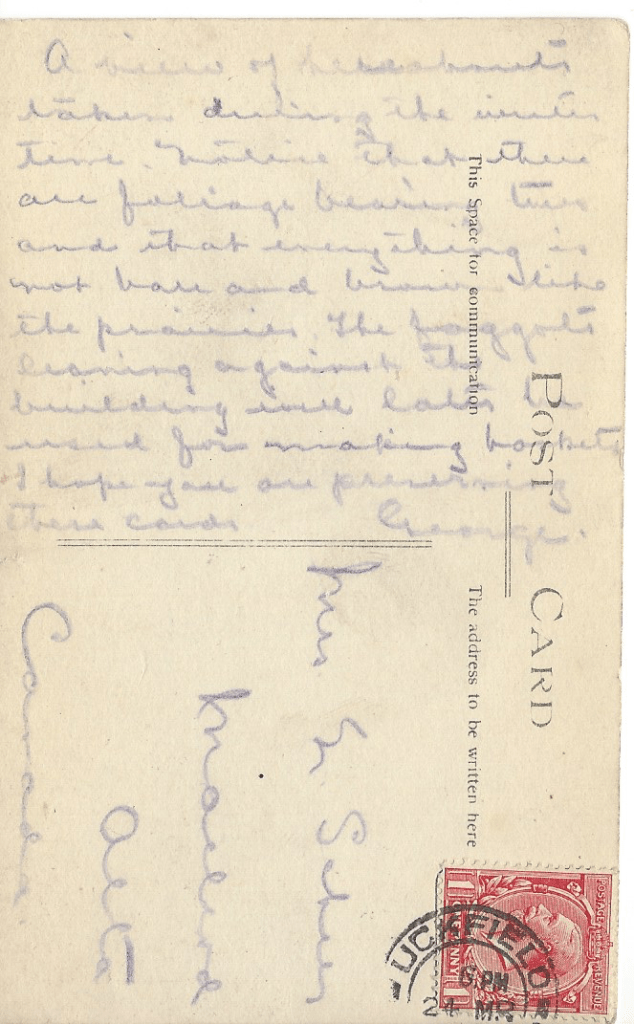 A view of hereabouts
taken during the winter
time. Notice that there
are foliage bearing trees
and that everything is
not bare and brown like
the prairies. The faggots
leaning against the
building will later be
used for making baskets
I hope you are preserving
these cards George.
POST CARD
This Space for communication
The address to be written here
Mrs. G. Scheer
Macleod
Alta
Canada
POSTAGE REVENUE
PENNY
UCKFIELD
6 PM
24 MR